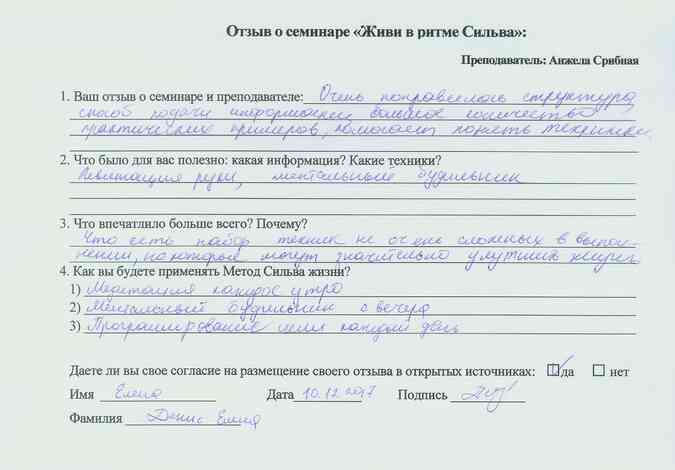 Отзыв о семинаре «Живи в ритме Сильва»:
Преподаватель: Анжела Срибная
1. Ваш отзыв о семинаре и преподавателе: Очень понравилась структура,
способ подачи информации, большое количество
практических примеров, помогают понять техники
2. Что было для вас полезно: какая информация? Какие техники?
Левитация руки, ментальный будильник
3. Что впечатлило больше всего? Почему?
Что есть набор техник не очень сложных в выпол-
нении, но которые могут значительно улучшить жизнь
4. Как вы будете применять Метод Сильва жизни?
1) Медитация каждое утро
2) Ментальный будильник с вечера
3) Программирование цели каждый день
Даете ли вы свое согласие на размещение своего отзыва в открытых источниках: да нет
Имя Елена Дата 10.12.2017 Подпись
Фамилия Денис Елена